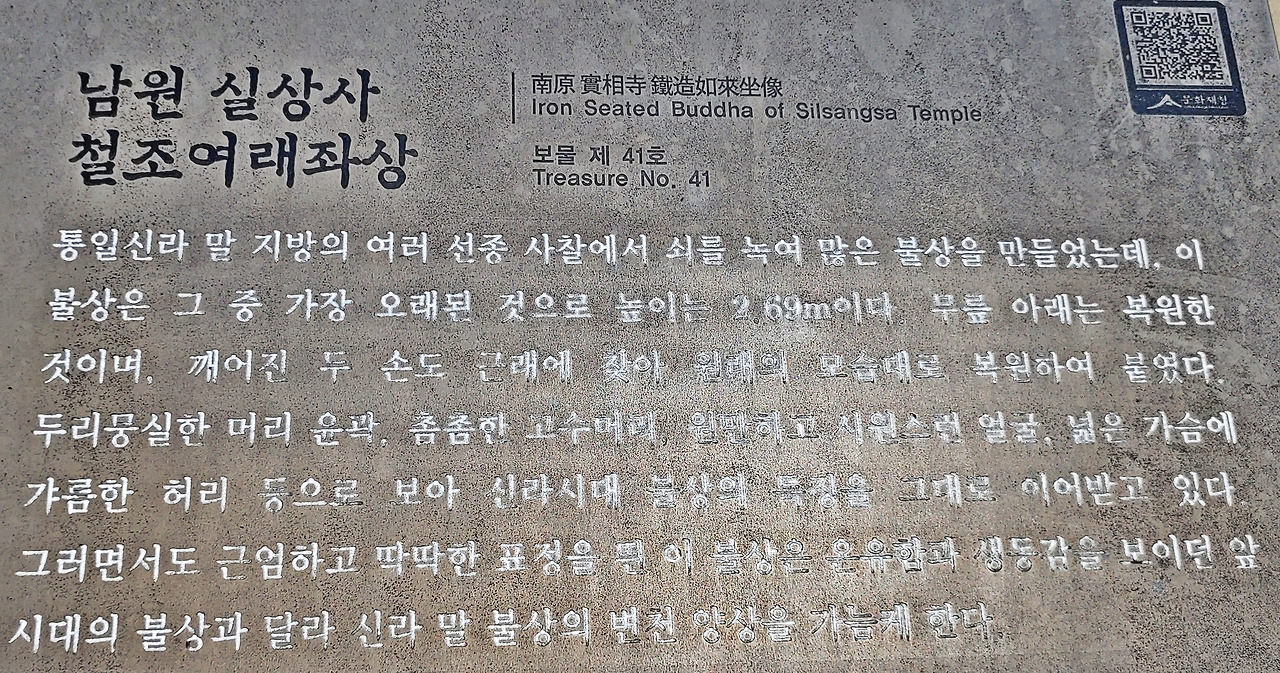 남원 실상사
철조여래좌상
南原 實相寺 鐵造如來坐像
Iron Seated Buddha of Silsangsa Temple
보물 제 41호
Treasure No. 41
문화재청
통일신라 말 지방의 여러 선종 사찰에서 쇠를 녹여 많은 불상을 만들었는데, 이
불상은 그 중 가장 오래된 것으로 높이는 2.69m이다. 무릎 아래는 복원한
것이며, 깨어진 두 손도 근래에 찾아 원래의 모습대로 복원하여 붙였다.
두리뭉실한 머리 윤곽, 촘촘한 고수머리, 원만하고 시원스런 얼굴, 넓은 가슴에
갸름한 허리 등으로 보아 신라시대 불상의 특징을 그대로 이어받고 있다.
그러면서도 근엄하고 딱딱한 표정을 띈 이 불상은 온유함과 생동감을 보이던 앞
시대의 불상과 달라 신라 말 불상의 변천 양상을 가늠케 한다.